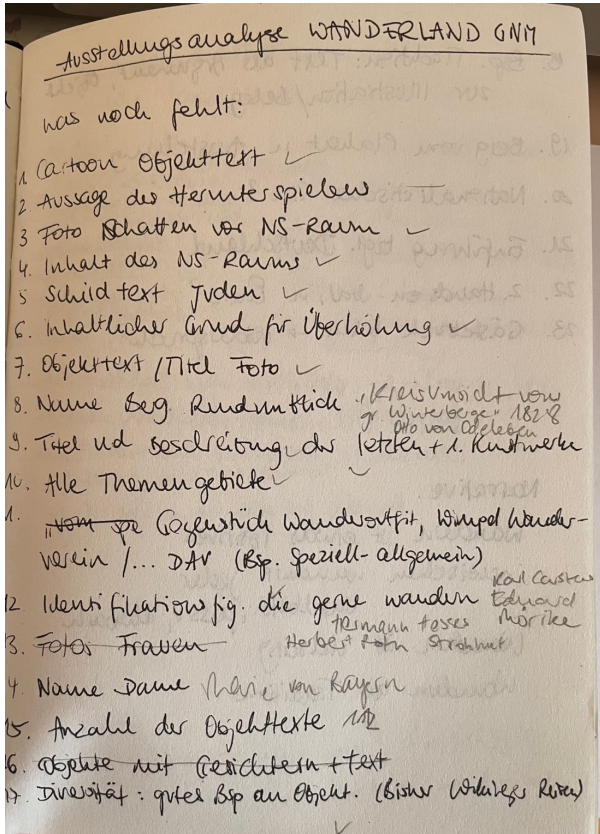 Ausstellungsanalyse WANDERLAND GNM
was noch fehlt:
1 Cartoon Objekttext ✓
2 Aussage des Herunterspielens —
3 Foto Schatten vor NS-Raum ✓
4. Inhalt des NS-Raums ✓
5 Schildtext Juden ✓
6. Inhaltlicher Grund für Überhöhung ✓
7. Objekttext / Titel Foto ✓
8. Name Berg Rundumblick "Kreisumsicht vom
gr. Winterberge" 1828
Otto von Odeleben
9. Titel und Beschreibung der letzten + 1. Kunstwerke
10. Alle Themengebiete ✓ ✓
1. Gegenstück Wanderoutfit, Wimpel Wander-
verein /... DAV (Bsp. speziell - allgemein)
12 Identifikationsfig. die gerne wandern Karl Carstens
Eduard
Hermann Hesses Mörike
3. Fotos Frauen Herbert Strohhut
4. Name Dame Marie von Bayern
15. Anzahl der Objekttexte 112
6. Objekte mit Gesichtern + Text
17. Diversität: gutes Bsp an Objekt. (Bisher Reisen)
✓